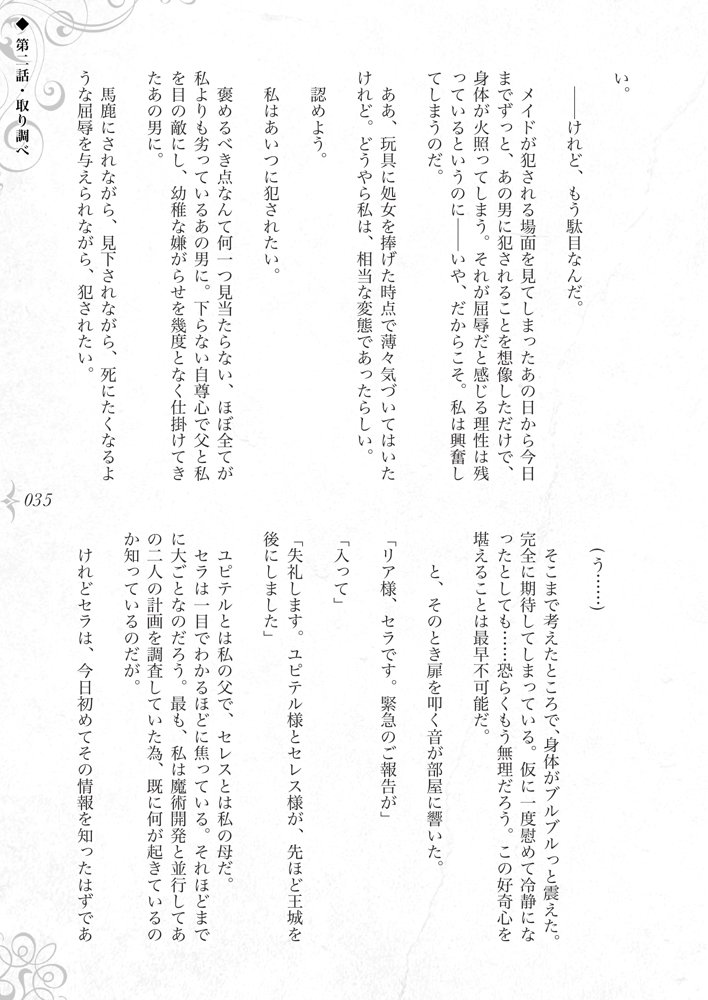 ◆ 第二話・取り調べ
い。
――けれど、もう駄目なんだ。
メイドが犯される場面を見てしまったあの日から今日
までずっと、あの男に犯されることを想像しただけで、
身体が火照ってしまう。それが屈辱だと感じる理性は残
っているというのに――いや、だからこそ。私は興奮し
てしまうのだ。
ああ、玩具に処女を捧げた時点で薄々気づいてはいた
けれど。どうやら私は、相当な変態であったらしい。
認めよう。
私はあいつに犯されたい。
褒めるべき点なんて何一つ見当たらない、ほぼ全てが
私よりも劣っているあの男に。下らない自尊心で父と私
を目の敵にし、幼稚な嫌がらせを幾度となく仕掛けてき
たあの男に。
馬鹿にされながら、見下されながら、死にたくなるよ
うな屈辱を与えられながら、犯されたい。
(う……)
そこまで考えたところで、身体がブルブルっと震えた。
完全に期待してしまっている。仮に一度慰めて冷静にな
ったとしても……恐らくもう無理だろう。この好奇心を
堪えることは最早不可能だ。
と、そのとき扉を叩く音が部屋に響いた。
「リア様、セラです。緊急のご報告が」
「入って」
「失礼します。ユピテル様とセレス様が、先ほど王城を
後にしました」
ユピテルとは私の父で、セレスとは私の母だ。
セラは一目でわかるほどに焦っている。それほどまで
に大ごとなのだろう。最も、私は魔術開発と並行してあ
の二人の計画を調査していた為、既に何が起きているの
か知っているのだが。
けれどセラは、今日初めてその情報を知ったはずであ
035